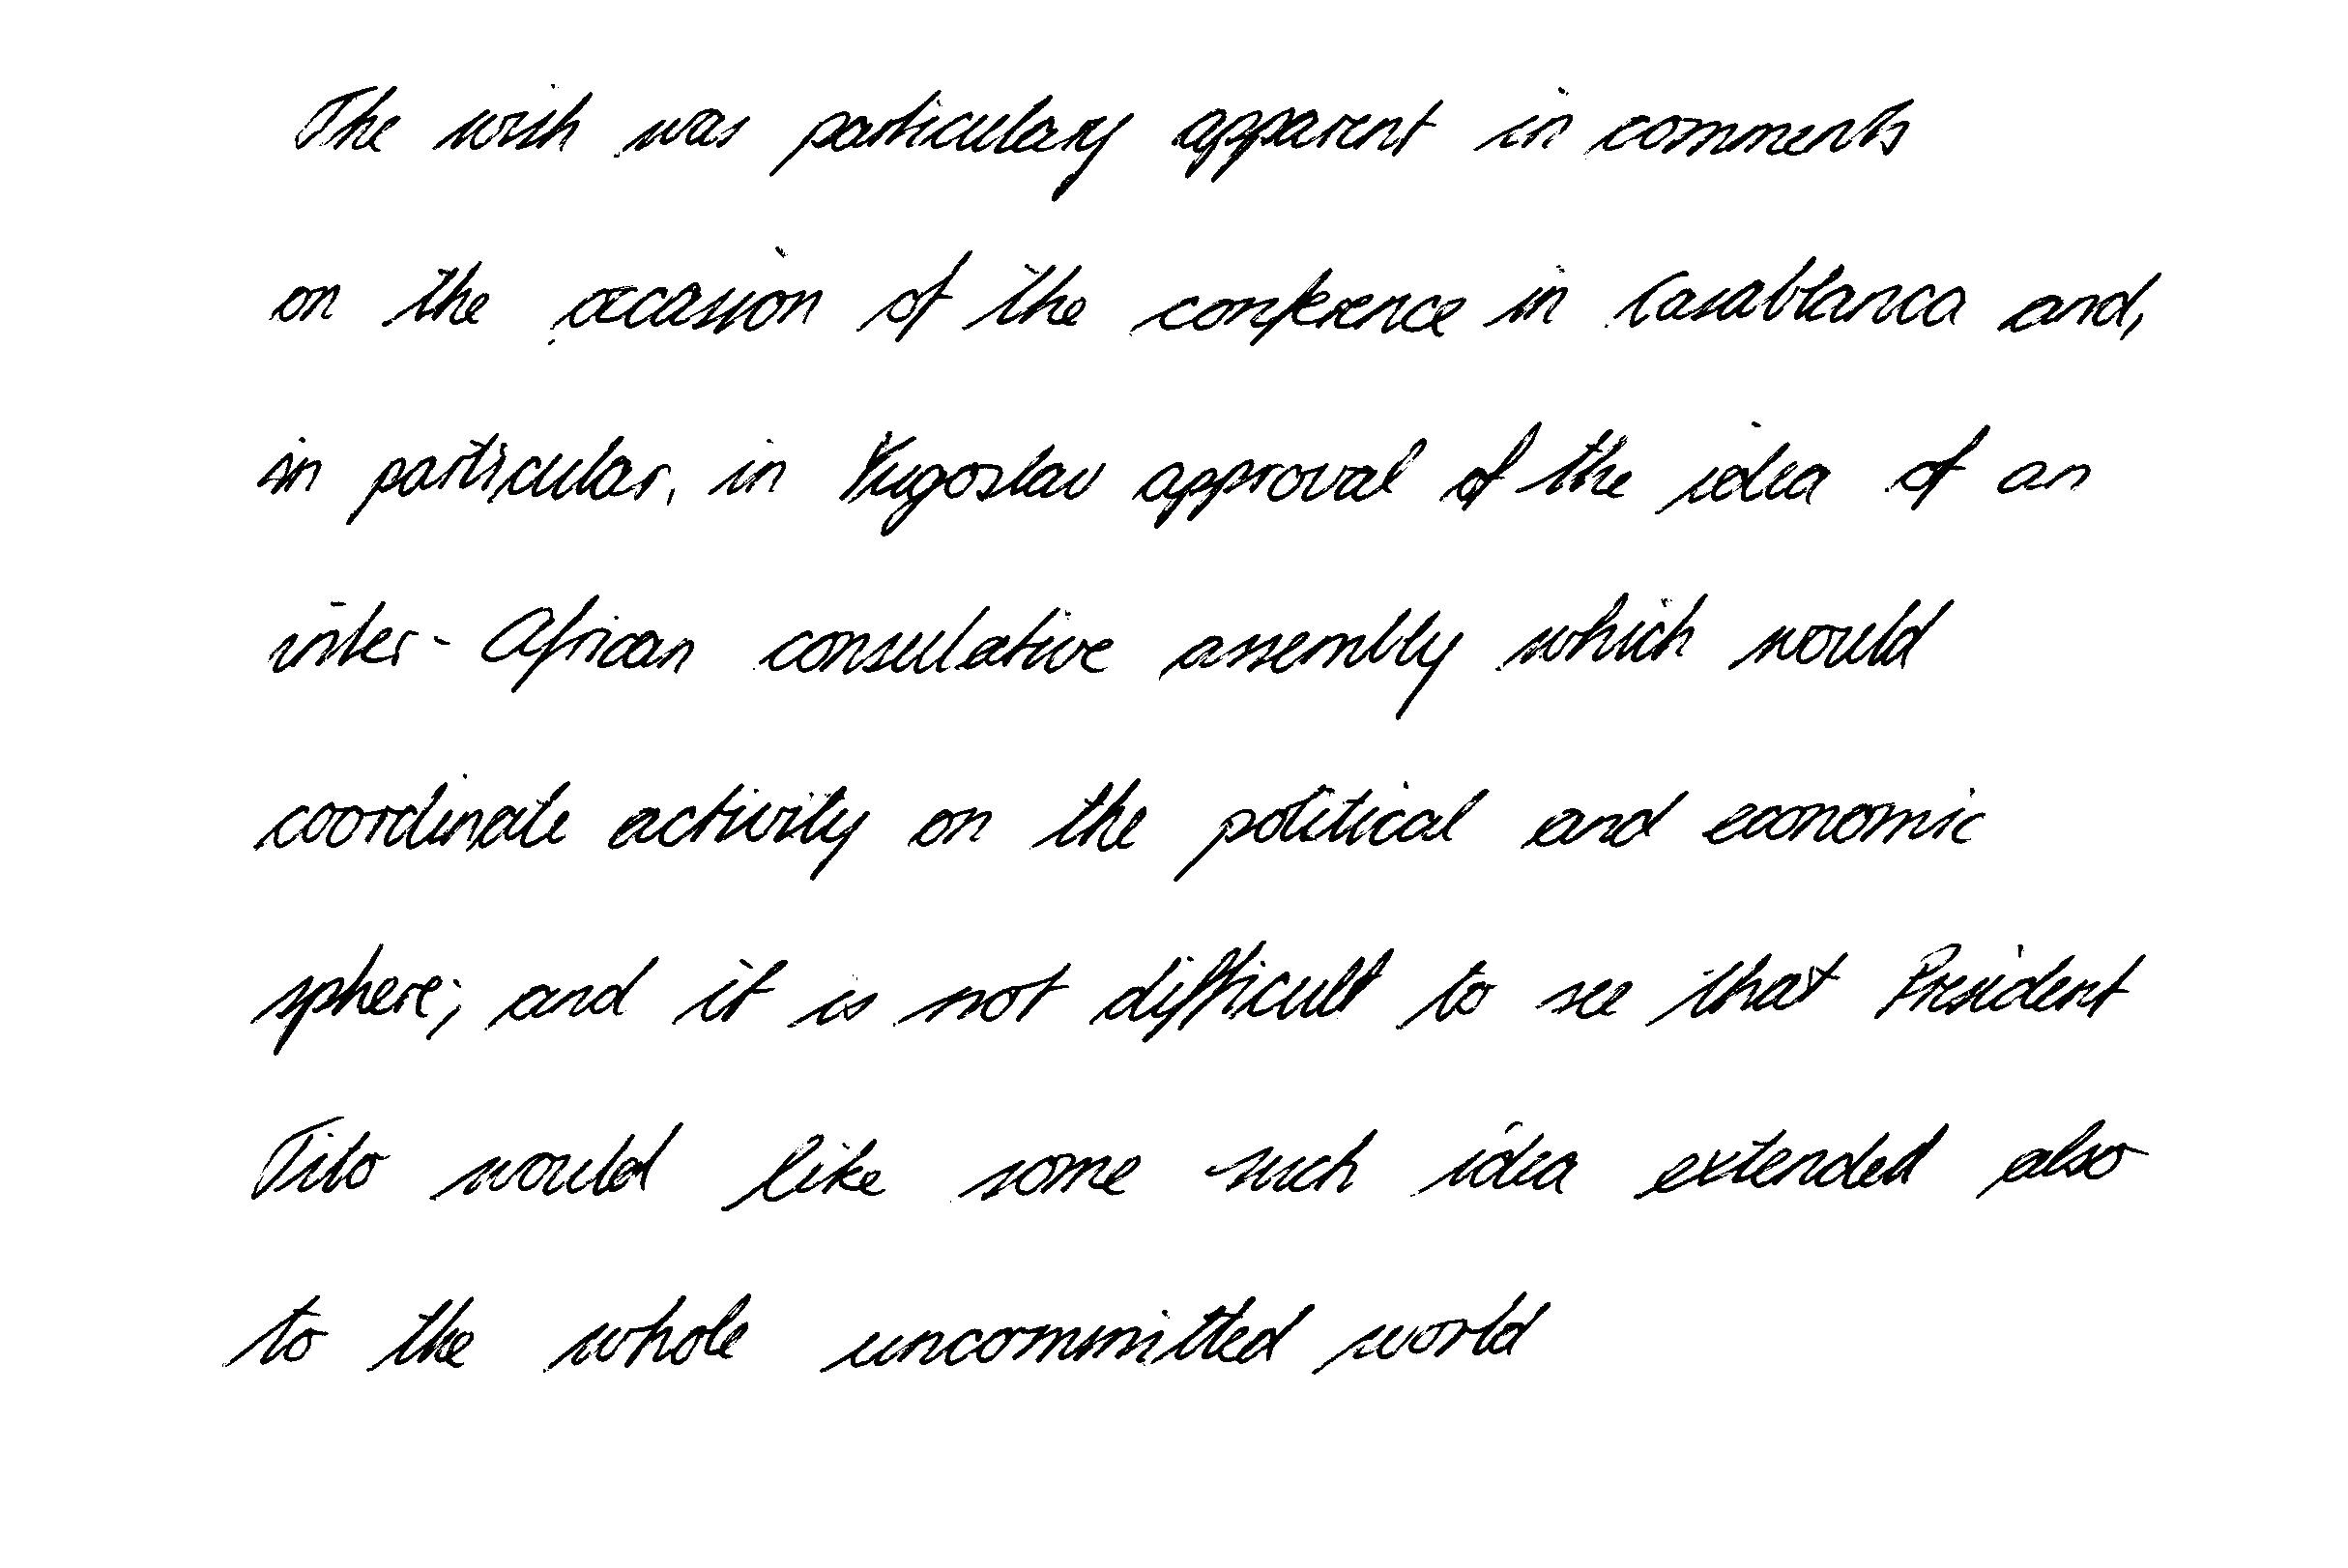 The wish was particulary apparent in comments
on the occasion of the conference in Casablanca and,
in particular, in Yugoslav approval of the idea of an
inter- African consulative assembly which would
coordinate activity on the political and economic
sphere; and it is not difficult to see that President
Tito would like some such idea extended also
to the whole uncommitted world